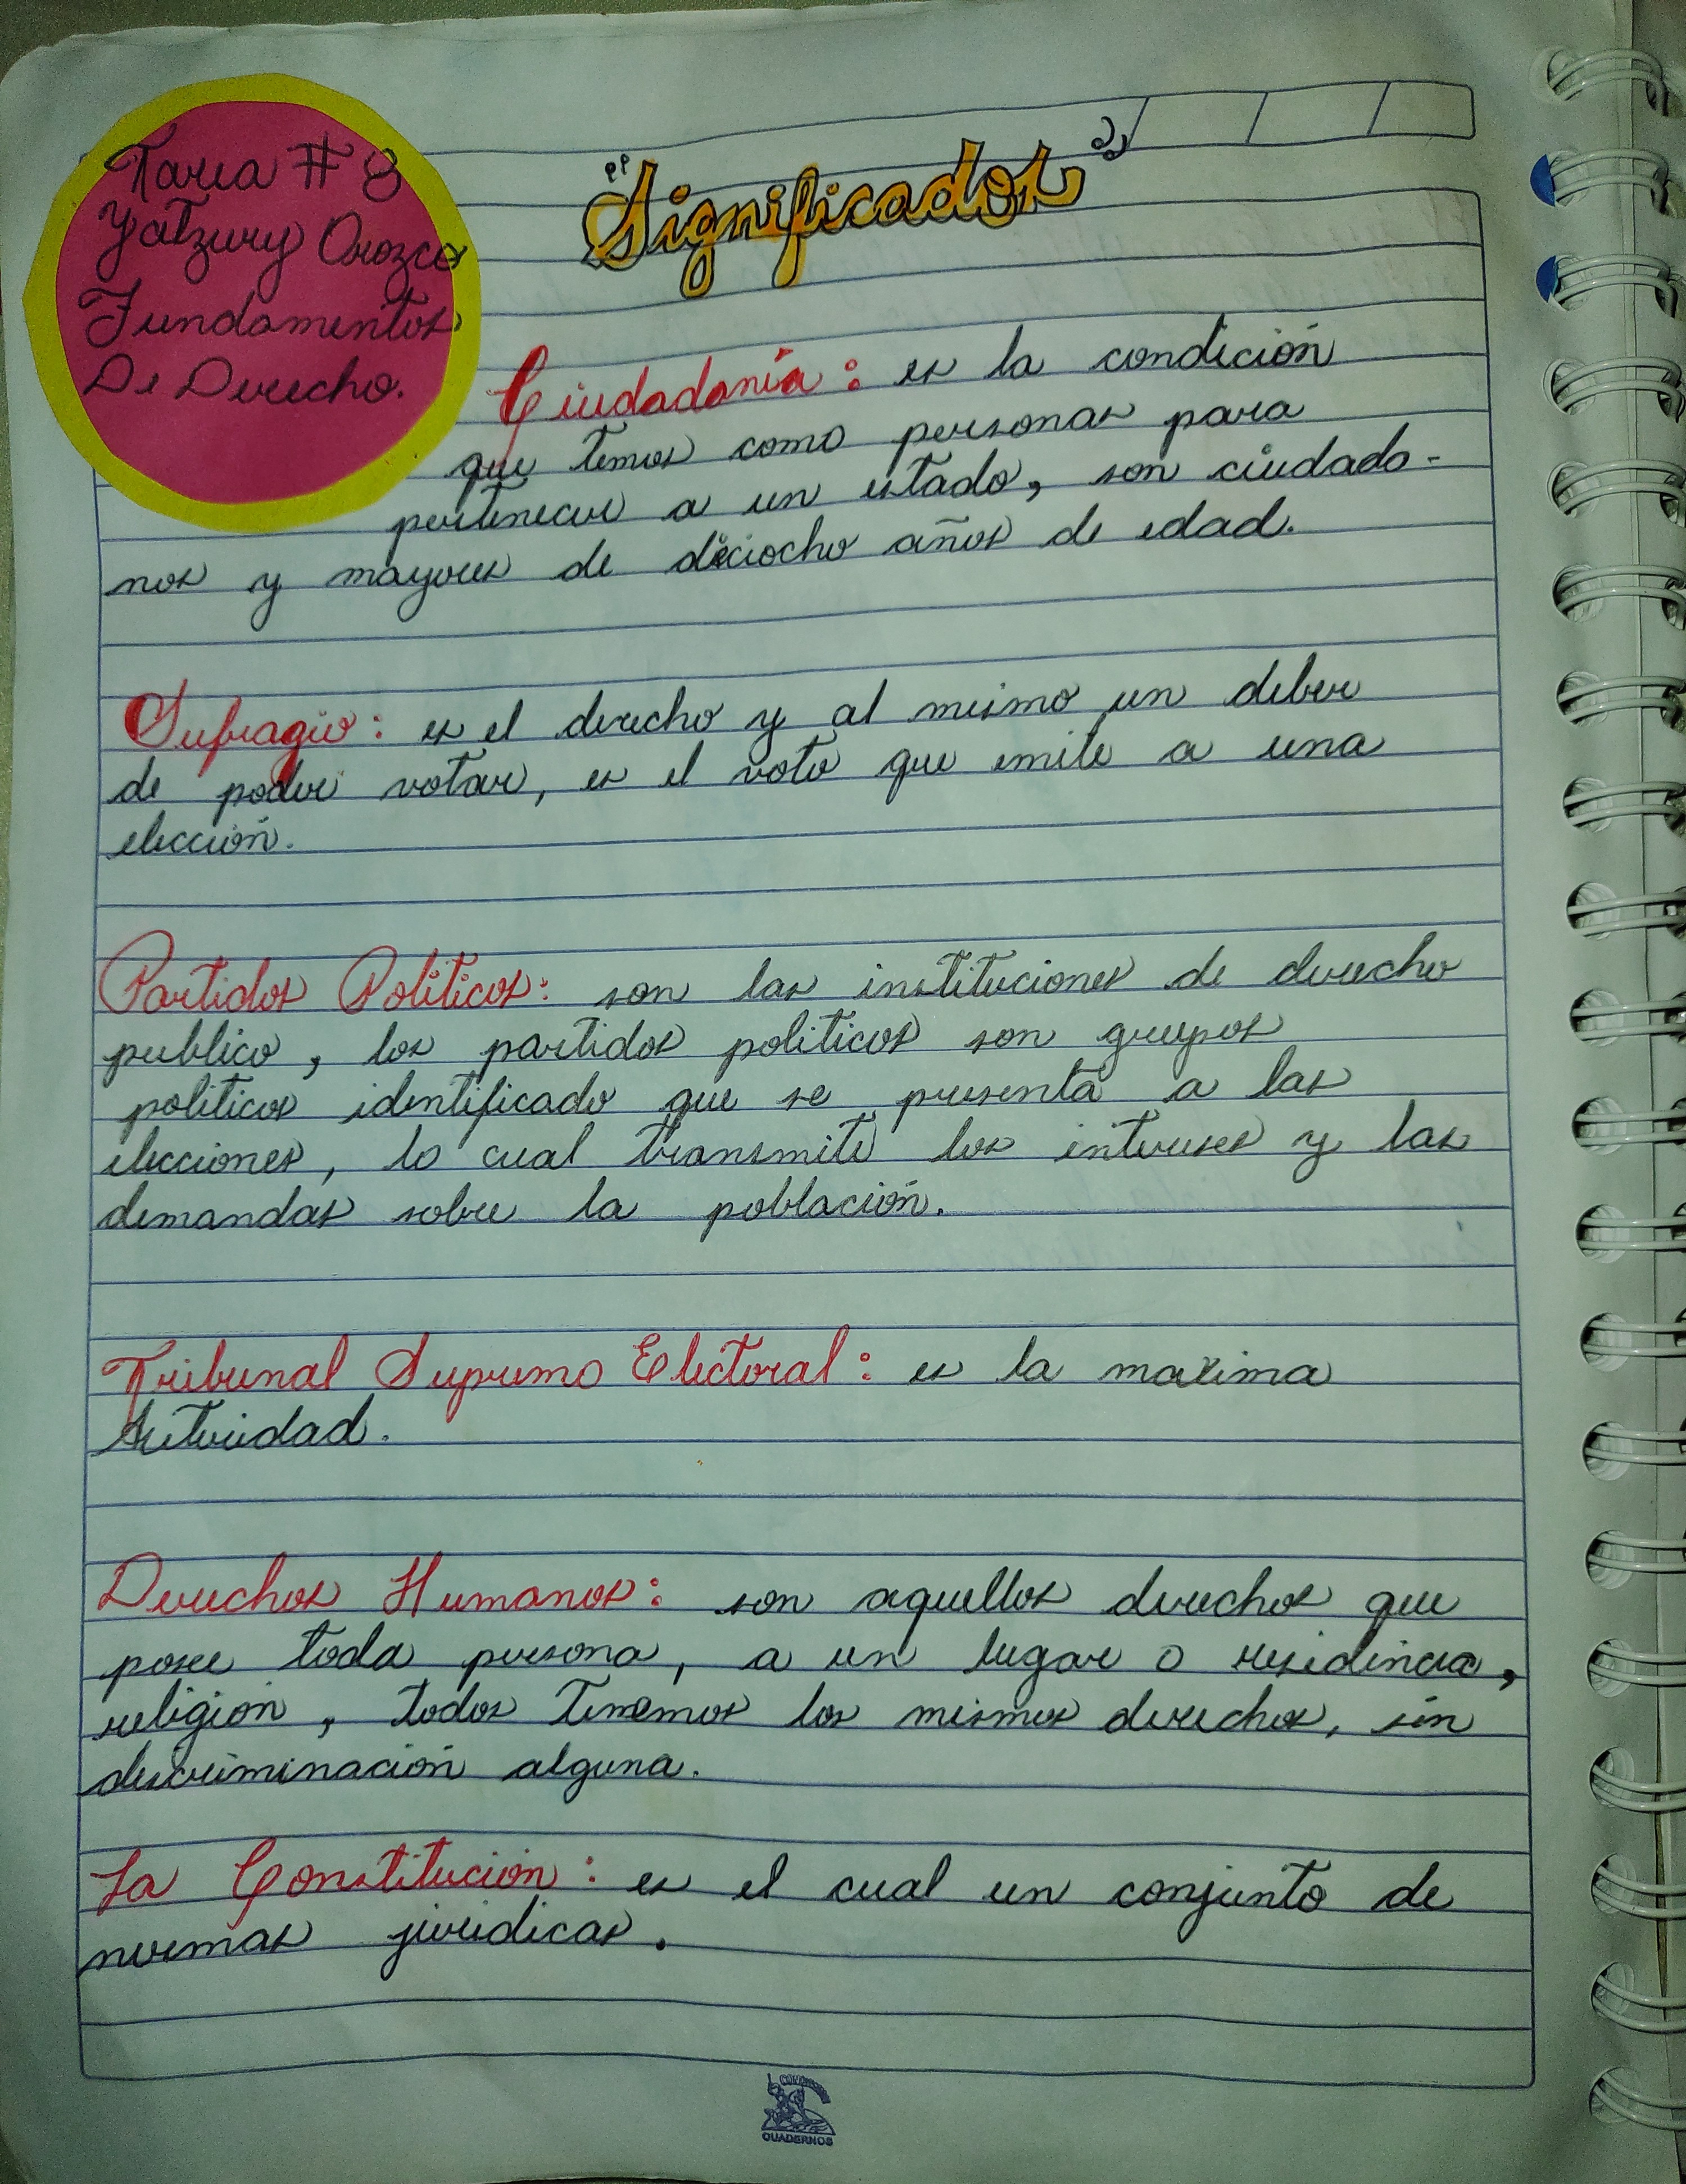 Tarea # 8
Yatzury Orozco
Fundamentos
De Derecho.
"Significados"
Ciudadanía: es la condición
que temos como personas para
pertenecer a un estado, son ciudada-
nos y mayores de dieciocho años de edad.
Sufragio: es el derecho y al mismo un deber
de poder votar, es el voto que emite a una
elección.
Partidos Politicos: son las instituciones de derecho
publico, los partidos politicos son grupos
politicos identificado que se presenta a las
elecciones, lo cual transmite los intereses y las
demandas sobre la población.
Tribunal Supremo Electoral: es la maxima
Autoridad.
Derechos Humanos: son aquellos derechos que
posee toda persona, a un lugar o residencia,
religión, todos tenemos los mismos derechos, sin
discriminación alguna.
La Constitución: es el cual un conjunto de
normas juridicas.
CUADERNOS